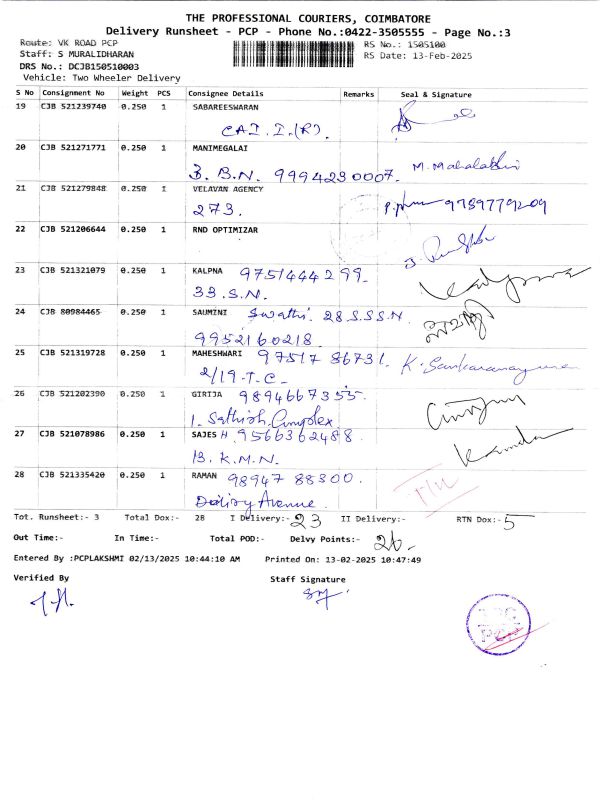 THE PROFESSIONAL COURIERS, COIMBATORE
Delivery Runsheet - PCP - Phone No.:0422-3505555 - Page No.:3
Route: VK ROAD PCP
RS No.: 1505100
Staff: S MURALIDHARAN
RS Date: 13-Feb-2025
DRS No.: DCJB150510003
Vehicle: Two Wheeler Delivery
S No Consignment No Weight PCS Consignee Details Remarks Seal & Signature
19 CJB 521239740 0.250 1 SABAREESWARAN
20 CJB 521271771 0.250 1 MANIMEGALAI
3. B.N. 9994230007. M. Mahalakshmi
21 CJB 521279848 0.250 1 VELAVAN AGENCY
273. 9789779209
22 CJB 521206644 0.250 1 RND OPTIMIZAR
23 CJB 521321079 0.250 1 KALPNA 9751444299.
33. S.N.
24 CJB 80984465 0.250 1 SAUMINI Swathi. 28 S.S.S.N.
9952160218.
25 CJB 521319728 0.250 1 MAHESHWARI 97517 86731.
2/19-T.C- K. Sankaranarayanan
26 CJB 521202390 0.250 1 GIRIJA 9894667355.
1. Sathish Complex
27 CJB 521078986 0.250 1 SAJES H 9566362488.
13. K.M.N.
28 CJB 521335420 0.250 1 RAMAN 98947 88300.
Avenue.
Tot. Runsheet:- 3 Total Dox:- 28 I Delivery:- 23 II Delivery:- RTN Dox:- 5
Out Time:- In Time:- Total POD:- Delvy Points:- 26-
Entered By :PCPLAKSHMI 02/13/2025 10:44:10 AM Printed On: 13-02-2025 10:47:49
Verified By Staff Signature
PCP